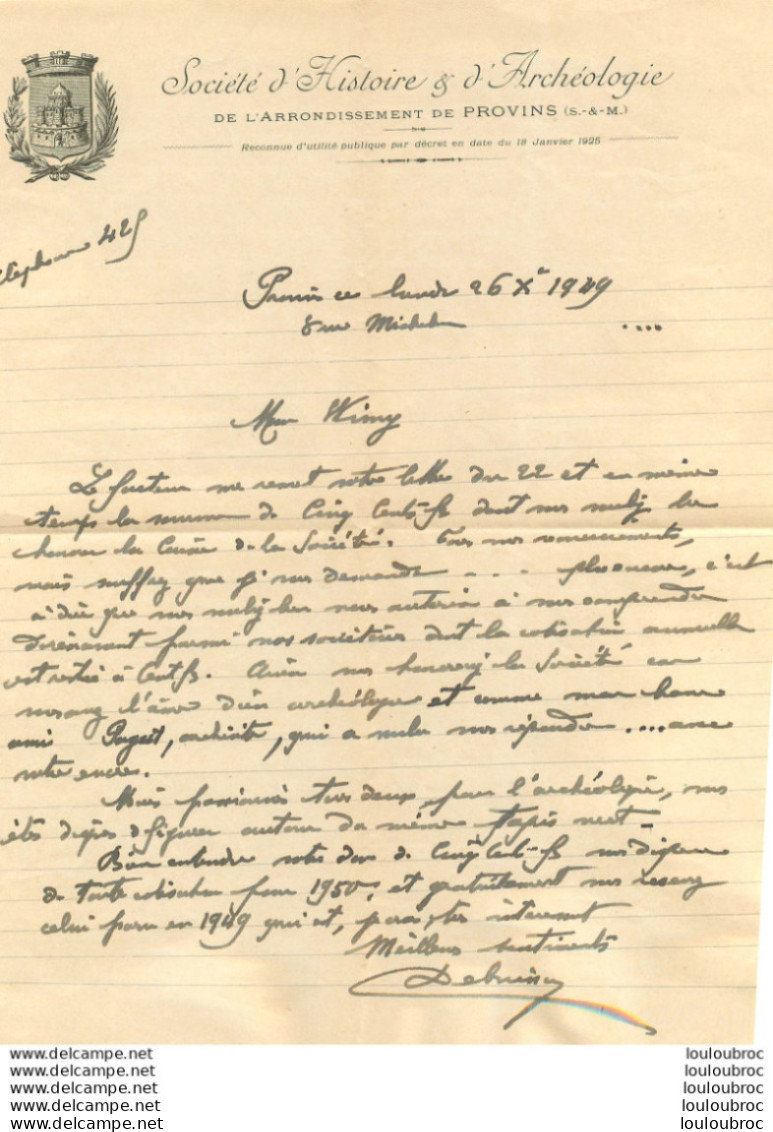 Société d'Histoire & d'Archéologie
DE L'ARRONDISSEMENT DE PROVINS (S.-&-M.)
Reconnue d'utilité publique par décret en date du 18 Janvier 1925
Téléphone 425
Provins ce lundi 26 Xe 1949
8 rue Michelin
Mr Wimy
Le facteur me remet votre lettre du 22 et en même
temps la somme de Cinq Cents frs dont vous voulez bien
honorer la Caisse de la Société. Tous nos remerciements,
mais souffrez que je vous demande ... plus encore, c'est
à dire que vous vouliez bien nous autoriser à vous comprendre
dorénavant parmi nos sociétaires dont la cotisation annuelle
est restée à Cent frs. Ainsi vous honorerez la Société car
vous avez l'âme d'un archéologue et comme mon
ami Paquet, architecte, qui a voulu vous répondre .... avec
votre encre.
Mais passionnés tous deux pour l'archéologie, vous
êtes dignes de figurer autour du même tapis vert.
Bien entendu votre don de Cinq Cents frs vous dispense
de toute cotisation pour 1950, et gratuitement vous recevrez
celui paru en 1949 qui est, très intéressant
Meilleurs sentiments
www.delcampe.net louloubroc
www.delcampe.net louloubroc
www.delcampe.net louloubroc
www.delcampe.net louloubroc
www.delcampe.net louloubroc